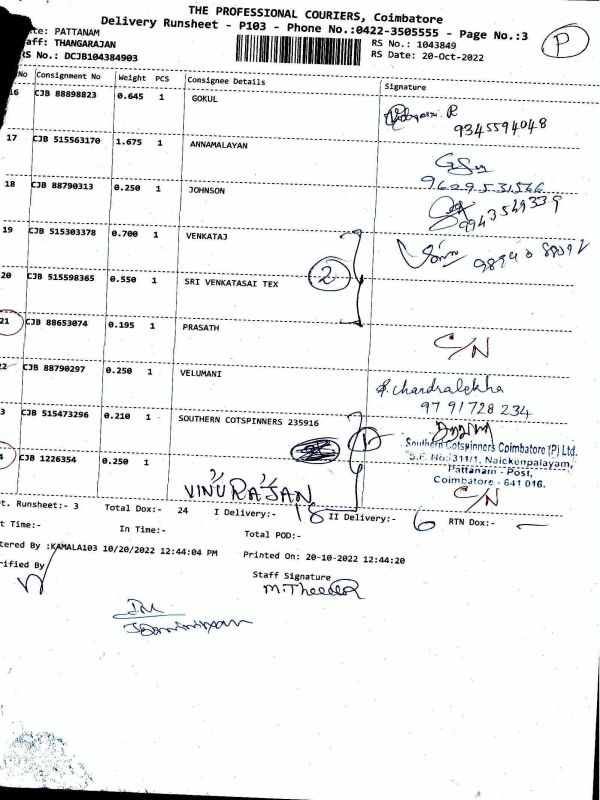 THE PROFESSIONAL COURIERS, Coimbatore
Delivery Runsheet - P103 - Phone No.:0422-3505555 - Page No.:3
P
te: PATTANAM
aff: THANGARAJAN
RS No.: 1043849
RS No.: DCJB104384903
RS Date: 20-Oct-2022
No Consignment No Weight PCS Consignee Details Signature
16 CJB 88898823 0.645 1 GOKUL
9345594048
17 CJB 515563170 1.675 1 ANNAMALAYAN
9629531566
18 CJB 88790313 0.250 1 JOHNSON
9943549339
19 CJB 515303378 0.700 1 VENKATAJ
2
20 CJB 515598365 0.550 1 SRI VENKATASAI TEX
21 CJB 88653074 0.195 1 PRASATH
C/N
22 CJB 88790297 0.250 1 VELUMANI
P. Chandralekha
97 91 728 234
3 CJB 515473296 0.210 1 SOUTHERN COTSPINNERS 235916
1
Southern Cotspinners Coimbatore (P) Ltd.
S.F. No:311/1, Naickenpalayam,
Pattanam - Post,
Coimbatore - 641 016.
4 CJB 1226354 0.250 1
VINU RAJAN
C/N
t. Runsheet:- 3 Total Dox:- 24 I Delivery:- 18 II Delivery:- 6 RTN Dox:- -
t Time:- In Time:- Total POD:-
tered By :KAMALA103 10/20/2022 12:44:04 PM Printed On: 20-10-2022 12:44:20
rified By
Staff Signature